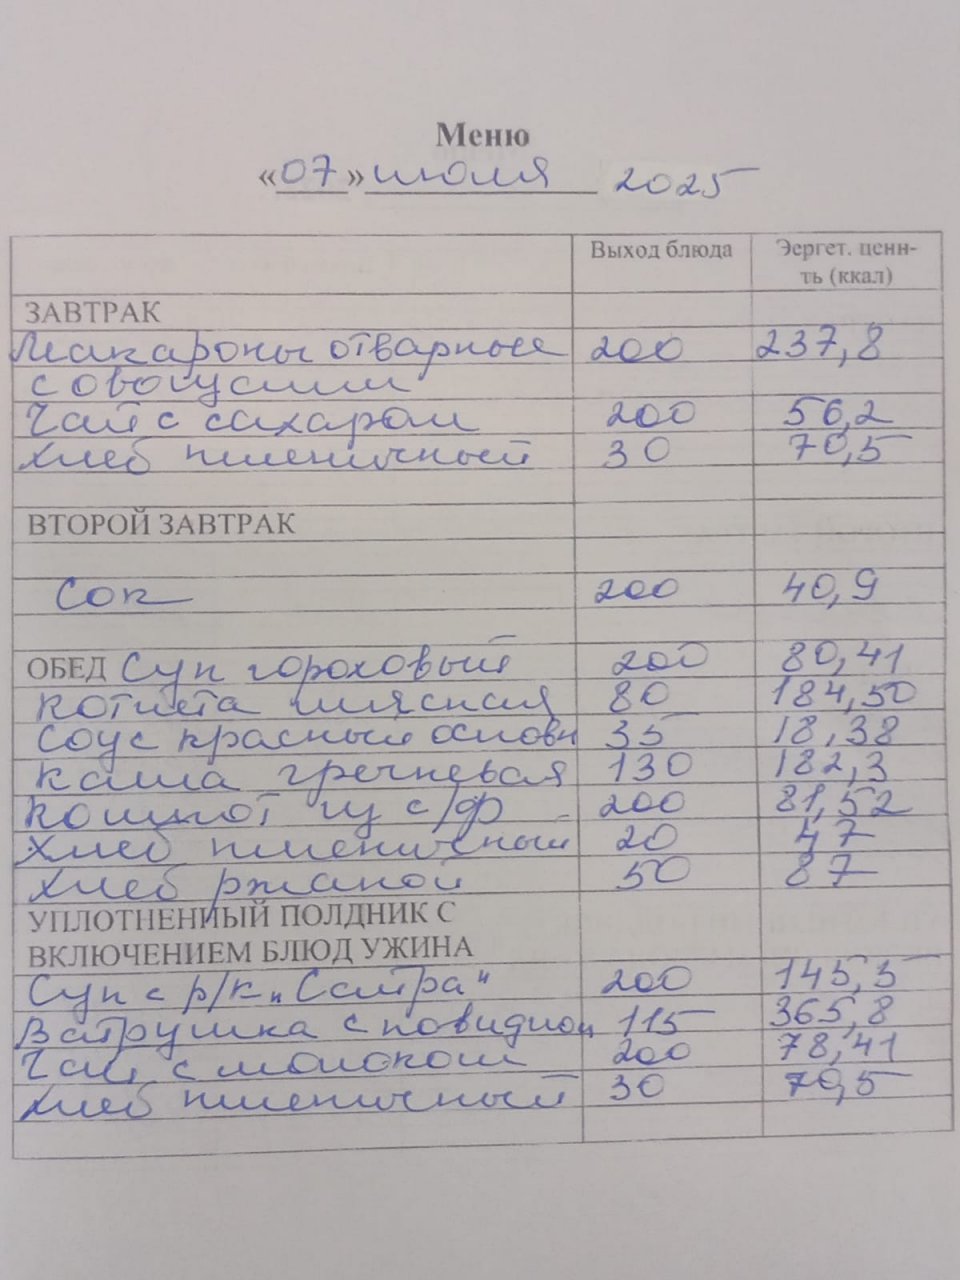 Меню
«07» июля 2025
Выход блюда Эергет. ценн-
ть (ккал)
ЗАВТРАК
Макароны отварные 200 237,8
с овощами
Чай с сахаром 200 56,2
Хлеб пшеничный 30 70,5
ВТОРОЙ ЗАВТРАК
Сок 200 40,9
ОБЕД Суп гороховый 200 80,41
Котлета мясная 80 184,50
Соус красный основн 35 18,38
Каша гречневая 130 182,3
Компот из с/ф 200 81,52
Хлеб пшеничный 20 47
Хлеб ржаной 50 87
УПЛОТНЕННЫЙ ПОЛДНИК С
ВКЛЮЧЕНИЕМ БЛЮД УЖИНА
Суп с р/к „Сайра" 200 145,5
Ватрушка с повидлом 115 365,8
Чай с молоком 200 78,41
Хлеб пшеничный 30 70,5